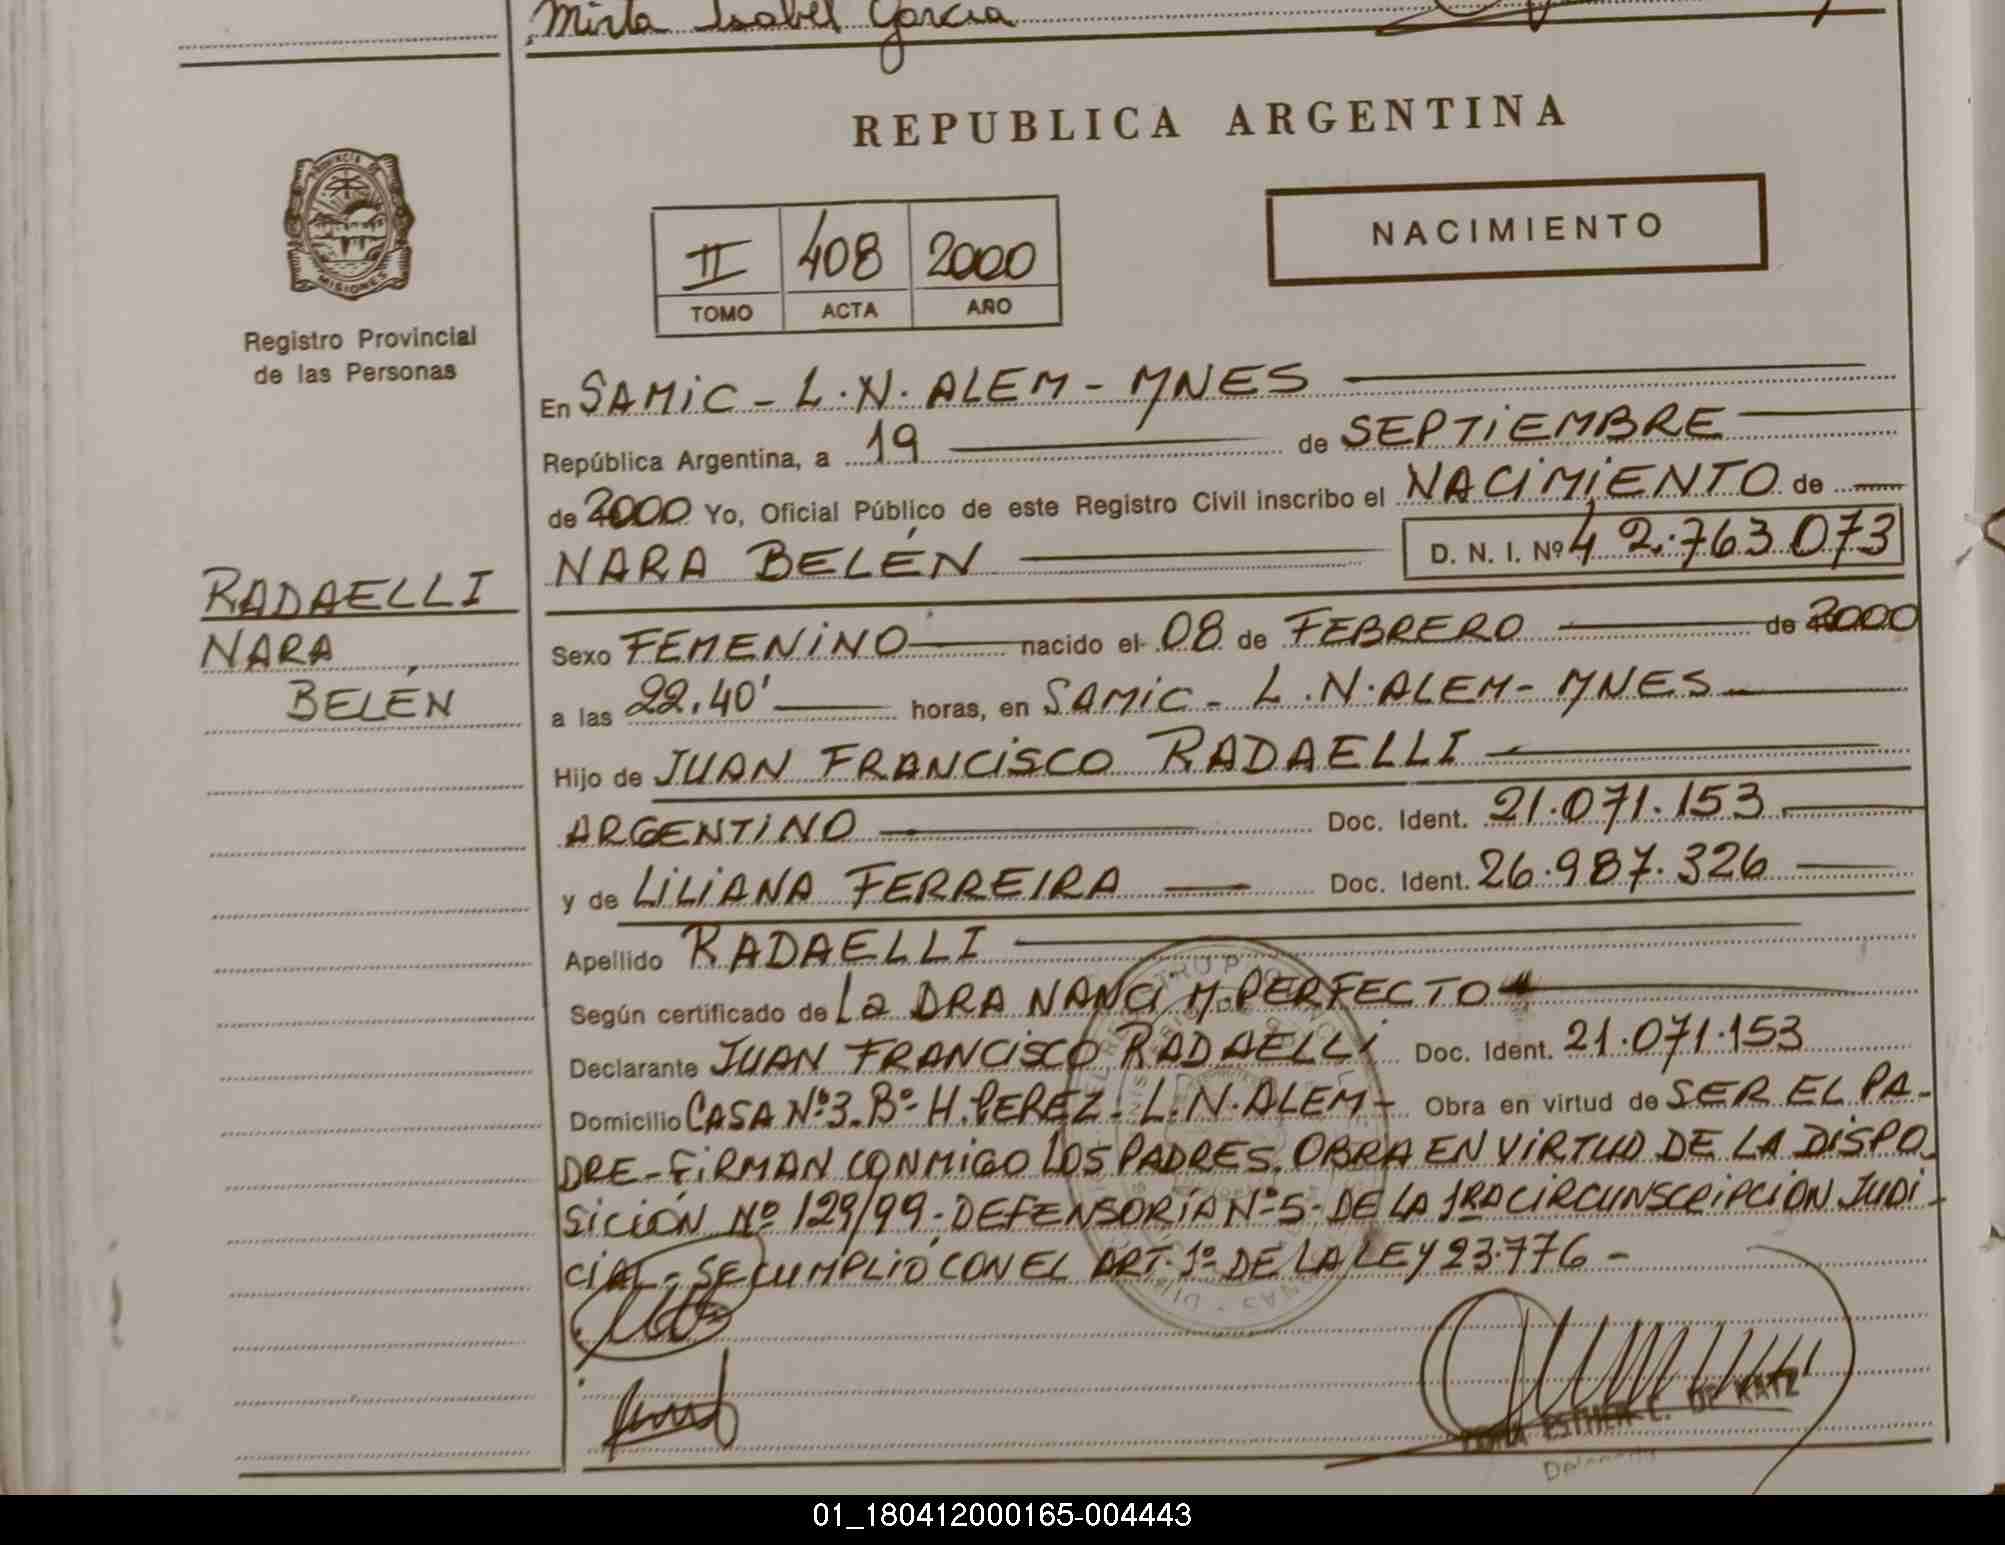 Mirta Isabel Garcia
REPUBLICA ARGENTINA
PROVINCIA DE
MISIONES
Registro Provincial
de las Personas
II 408 2000
TOMO ACTA AÑO
NACIMIENTO
En SAMIC - L.N. ALEM - MNES
República Argentina, a 19 de SEPTIEMBRE
de 2000 Yo, Oficial Público de este Registro Civil inscribo el NACIMIENTO de
NARA BELÉN D. N. I. Nº 42.763.073
RADAELLI
NARA
BELÉN
Sexo FEMENINO nacido el 08 de FEBRERO de 2000
a las 22.40' horas, en SAMIC - L.N. ALEM - MNES
Hijo de JUAN FRANCISCO RADAELLI
ARGENTINO Doc. Ident. 21.071.153
y de LILIANA FERREIRA Doc. Ident. 26.987.326
Apellido RADAELLI
Según certificado de La DRA NANCI M. PERFECTO
Declarante JUAN FRANCISCO RADAELLI Doc. Ident. 21.071.153
Domicilio CASA Nº 3. Bº- H. PEREZ - L.N. ALEM - Obra en virtud de SER EL PA-
DRE - FIRMAN CONMIGO LOS PADRES. OBRA EN VIRTUD DE LA DISPO-
SICIÓN Nº 129/99 - DEFENSORÍA Nº 5 - DE LA 1RA CIRCUNSCRIPCIÓN JUDI-
CIAL - SE CUMPLIÓ CON EL ART. 1º DE LA LEY 23.776 -
ESTHER C. DE KATZ
01_180412000165-004443